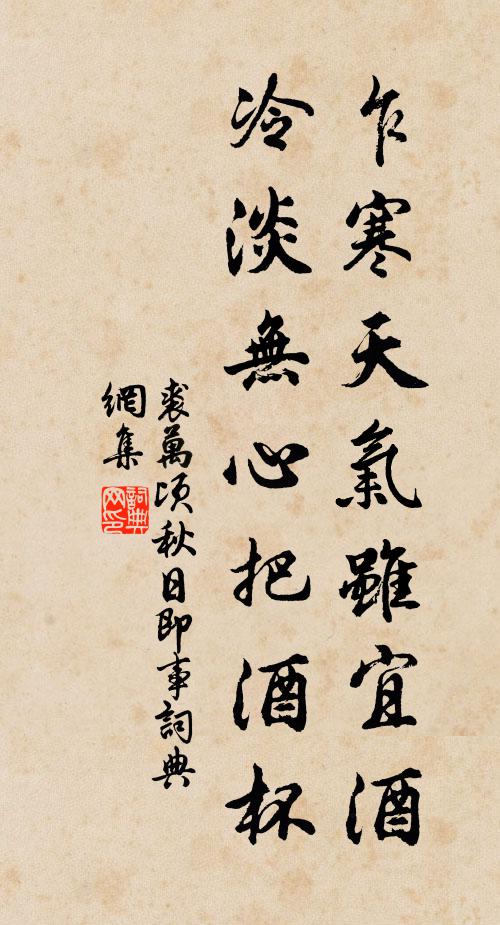 乍寒天氣雖宜酒
冷淡無心把酒杯
裘萬頃秋日即事詞典
網集
詞典网印